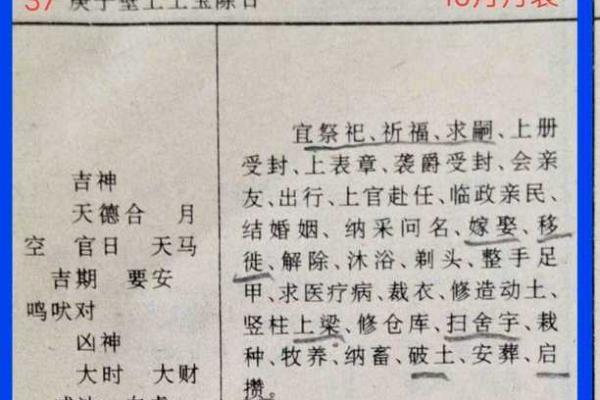 37 庚子壁土玉宝除日
10月月表
吉神
天德合 月
空 官日 天马
吉期 要安
鸣吠对
凶神
大时 大财
宜祭祀、祈福、求嗣、上册
受封、上表章、袭爵受封、会亲
友、出行、上官赴任、临政亲民、
结婚姻、纳采问名、嫁娶、移
徙、解除、沐浴、剃头、整手足
甲、求医疗病、裁衣、修造动土、
竖柱上梁、修仓库、扫舍宇、栽
种、牧养、纳畜、破土、安葬、启
攒。